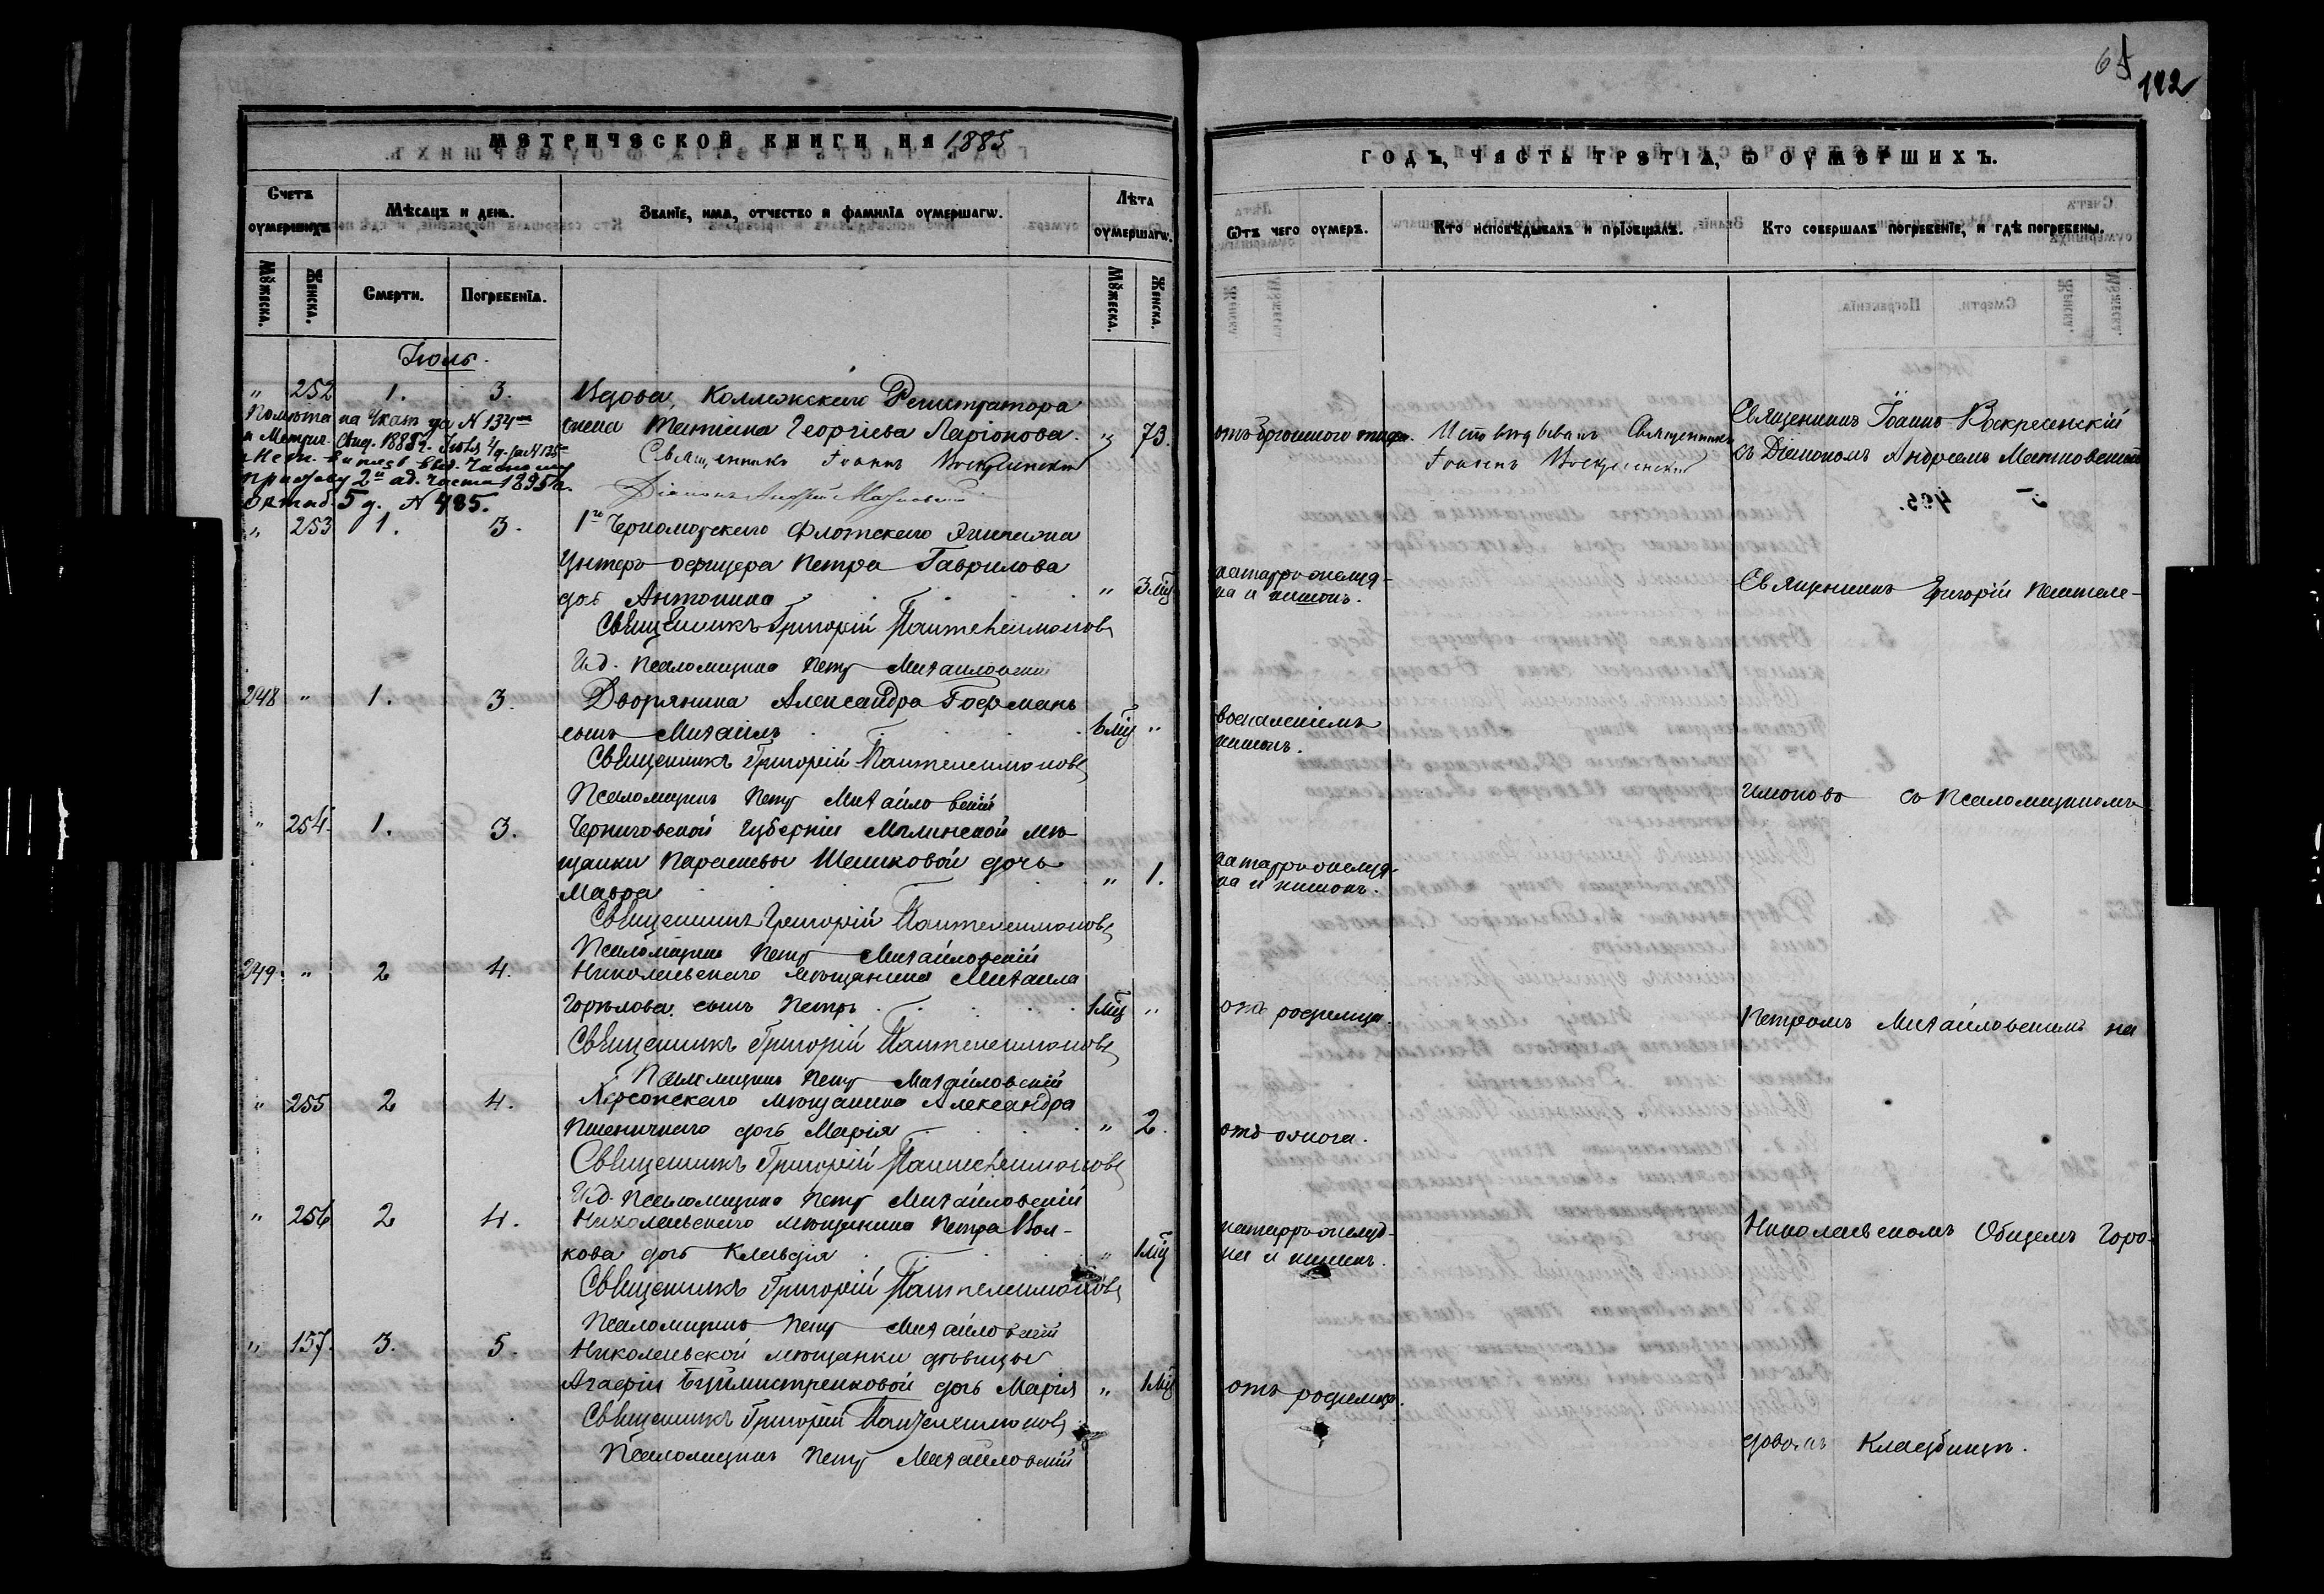 65
112
МЕТРИЧЕСКОЙ КНИГИ НА 1885
ГОДЪ, ЧАСТЬ ТРЕТІѦ, Ѡ ОУМЕРШИХЪ.
Счетъ оумершихъ
Мѣсѧцъ и день.
Званіе, имѧ, отчество и фамиліѧ оумершагѡ.
Лѣта оумершагѡ.
Ѿтъ чего оумеръ.
Кто исповѣдывалъ и пріобщалъ.
Кто совершалъ погребеніе, и гдѣ погребены.
Мꙋжеска.
Женска.
Смерти.
Погребеніѧ.
Мꙋжеска.
Женска.
Іюль.
" 252 1. 3. Вдова Коллежскаго Регистратора
жена Татіана Георгіева Ларіонова. " 73.
Священникъ Іоаннъ Воскресенскій
Діаконъ Андрей
отъ брюшного тифа. Исповѣдывалъ Священникъ
Іоаннъ Воскресенскій
Священникъ Іоаннъ Воскресенскій
съ Діакономъ Андреемъ
№ 134
2й ад. части 1895 г.
октяб. 5 д. № 485.
" 253 1. 3. 1го Черноморскаго Флотскаго Экипажа
Унтеръ офицера Петра Гаврилова
дочь Антонина " 3 мц
Священникъ Григорій Пантелеимоновъ
И.д. Псаломщика Петръ Михайловскій
катарръ желуд-
ка и кишокъ.
Священникъ Григорій Пантеле-
248 " 1. 3. Дворянина Александра Гофманъ
сынъ Михаилъ 6 мц "
Священникъ Григорій Пантелеимоновъ
Псаломщикъ Петръ Михайловскій
воспаленіемъ
кишокъ.
имоновъ съ Псаломщикомъ
" 254. 1. 3. Черниговской Губерніи Мглинской мѣ-
щанки Параскевы Шешковой дочь
Мавра " 1.
Священникъ Григорій Пантелеимоновъ
Псаломщикъ Петръ Михайловскій
катарръ желуд-
ка и кишокъ.
249. " 2 4. Николаевскаго мѣщанина Михаила
Горѣлова сынъ Петръ 1 мц "
Священникъ Григорій Пантелеимоновъ
Псаломщикъ Петръ Михайловскій
отъ родимца.
Петромъ Михайловскимъ на
" 255 2 4. Херсонскаго мѣщанина Александра
Пшеничнаго дочь Марія " 2.
Священникъ Григорій Пантелеимоновъ
И.д. Псаломщика Петръ Михайловскій
отъ ожога.
" 256 2 4. Николаевскаго мѣщанина Петра Вол-
кова дочь Клавдія " 1 мц
Священникъ Григорій Пантелеимоновъ
Псаломщикъ Петръ Михайловскій
катарръ желуд-
ка и кишекъ.
Николаевскомъ Общемъ Горо-
" 157. 3. 5. Николаевской мѣщанки дѣвицы
Агафіи Буймистренковой дочь Марія " 1 мц
Священникъ Григорій Пантелеимоновъ
Псаломщикъ Петръ Михайловскій
отъ родимца.
довомъ Кладбищѣ.